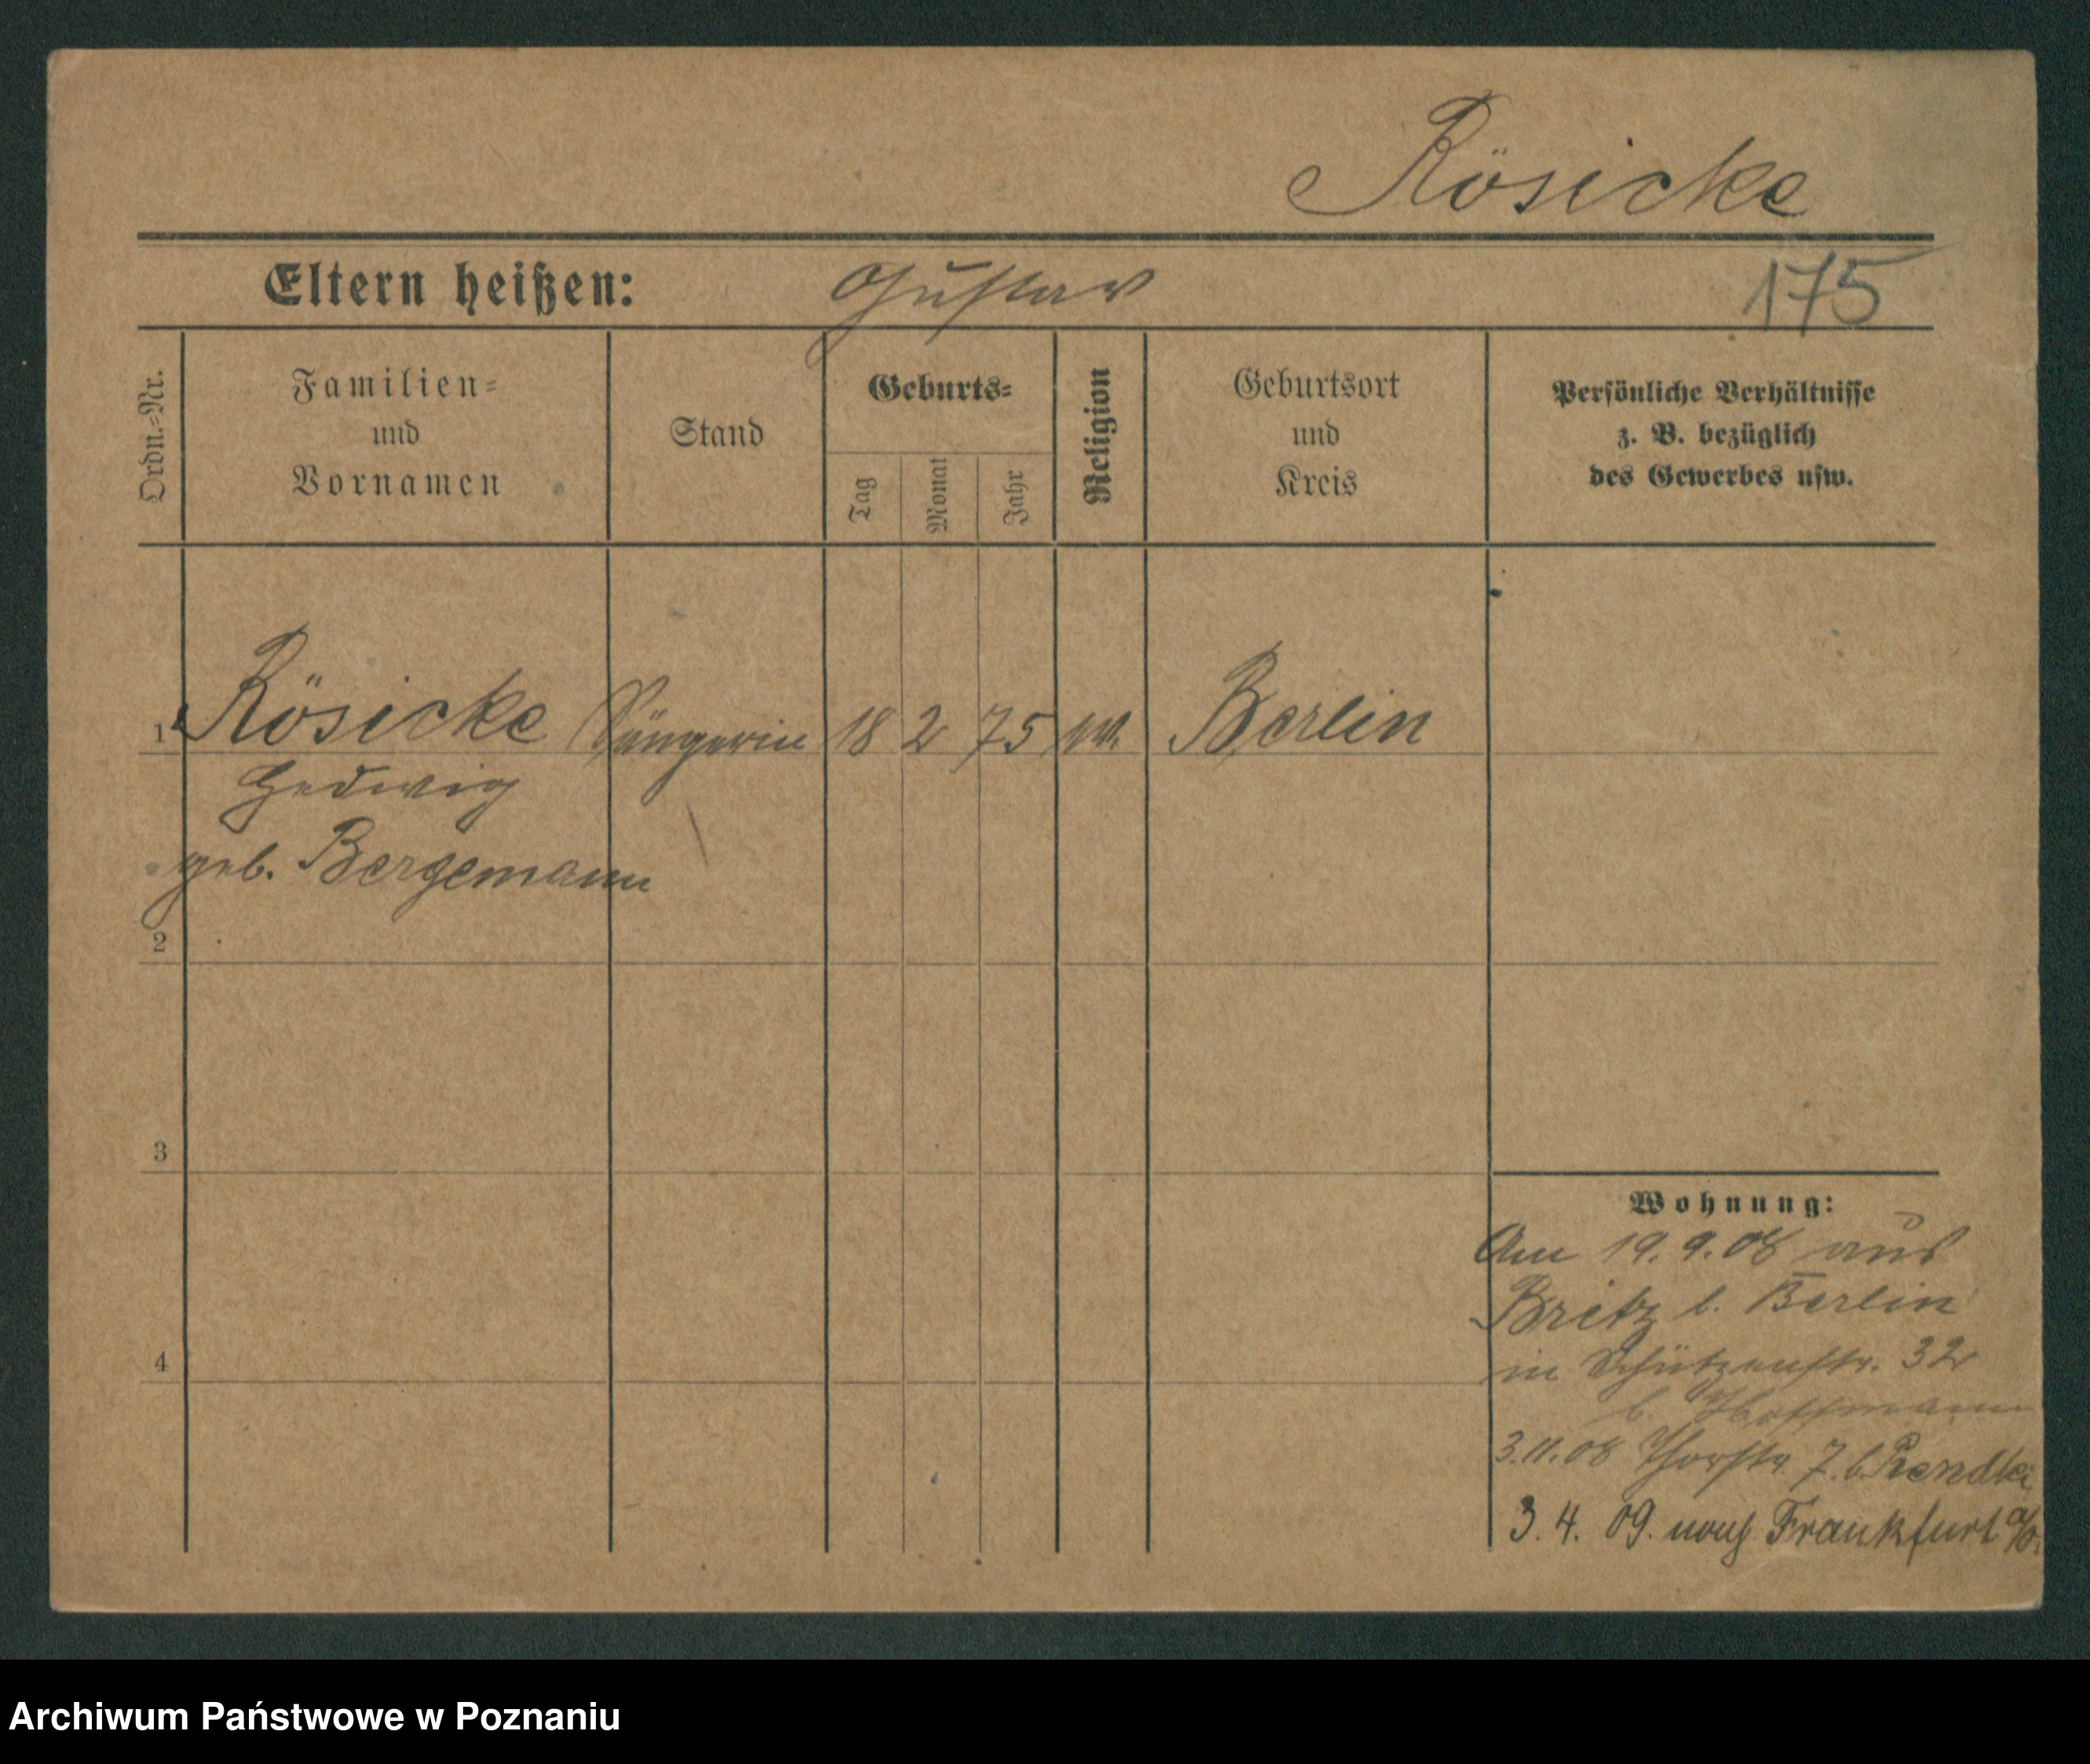 Rösicke
Eltern heißen: Gustav 175
Ordn.=Nr.
Familien=
und
Vornamen
Stand
Geburts=
Tag
Monat
Jahr
Religion
Geburtsort
und
Kreis
Persönliche Verhältnisse
z. B. bezüglich
des Gewerbes usw.
1 Rösicke Sängerin 18 2 75 ev. Berlin
Hedwig
geb. Bergemann
2
3
4
Wohnung:
Am 19.9.08 aus
Britz b. Berlin
in Schützenstr. 32
b. Hoffmann
3.11.08 Thorstr. 7. b.
3. 4. 09. nach Frankfurt a/O.
Archiwum Państwowe w Poznaniu